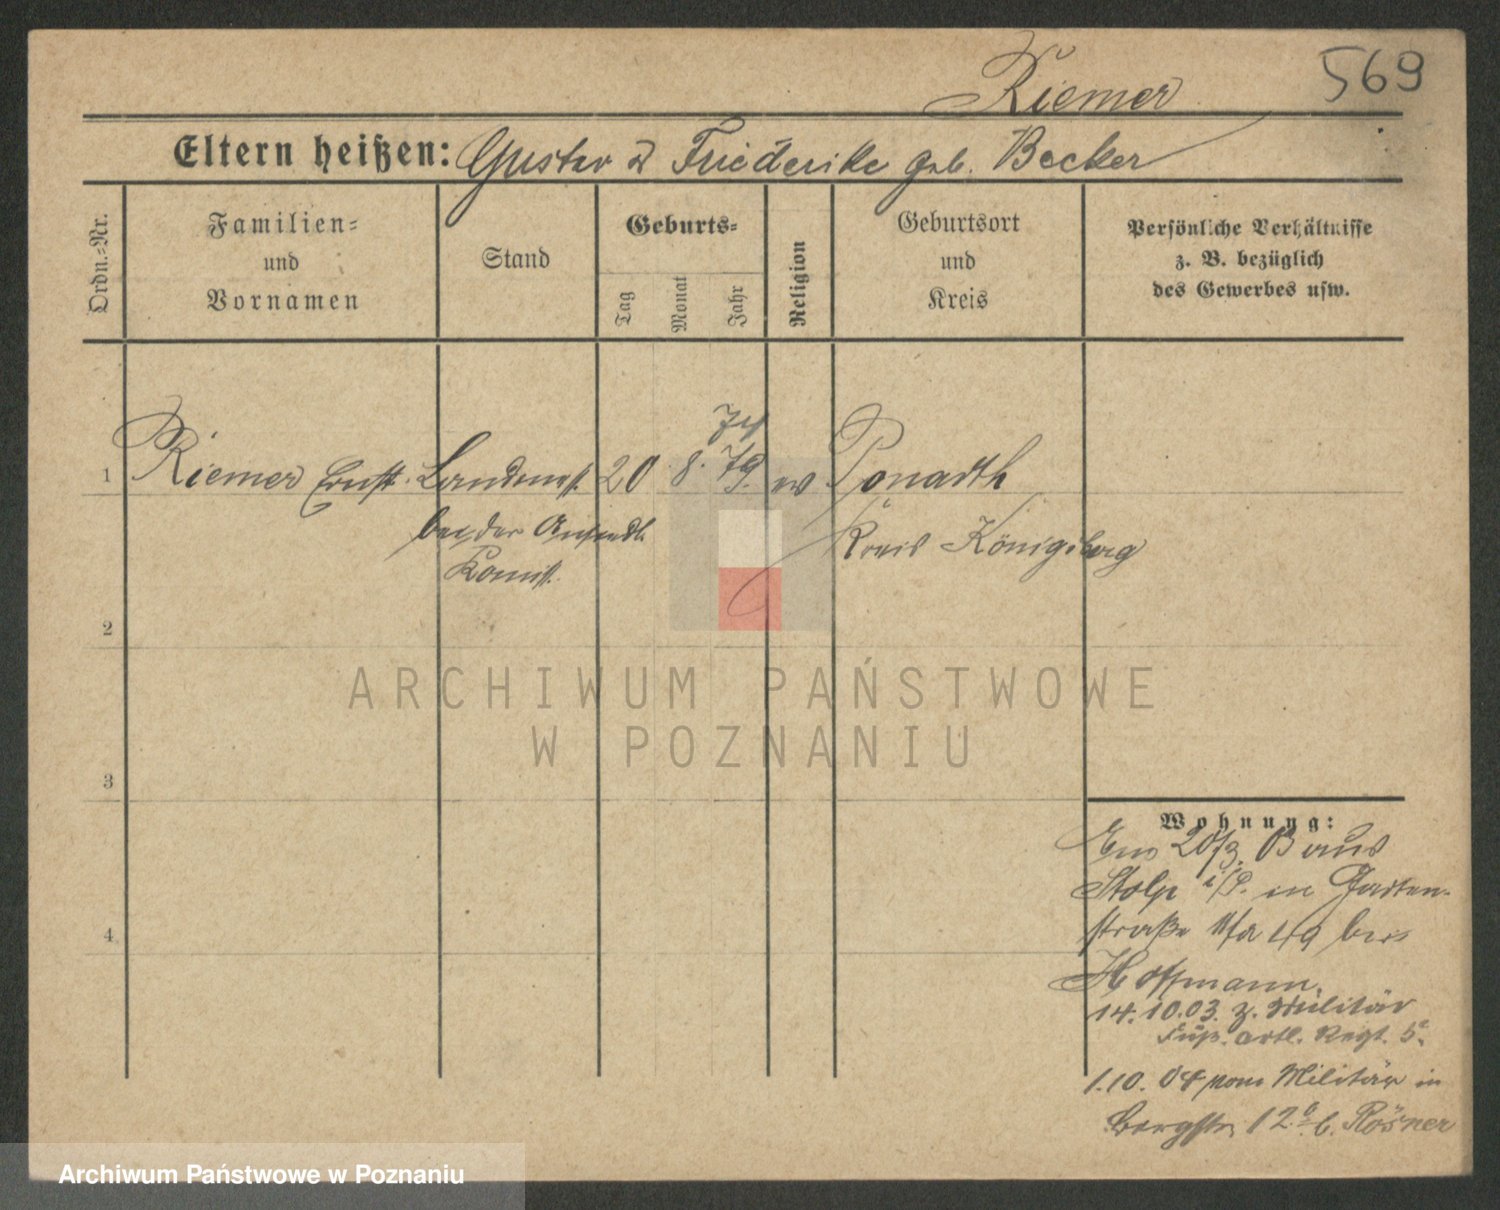 Riemer
569
Eltern heißen: Gustav u Friederike geb. Becker
Ordn.=Nr.
Familien=
und
Vornamen
Stand
Geburts=
Tag
Monat
Jahr
Religion
Geburtsort
und
Kreis
Persönliche Verhältnisse
z. B. bezüglich
des Gewerbes usw.
74
1 Riemer Ernst. 20 8. 79. ev Ponarth
bei der Ansiedl. Kreis Königsberg
Komiss.
2
ARCHIWUM PAŃSTWOWE
W POZNANIU
3
Wohnung:
20/3. aus
Stolp i/P. in Garten-
straße 49 bei
Hoffmann.
14.10.03. z. Militär
Fuß. artl. Regt. 5.
1.10.04 vom Militär in
Bergstr. 12 b. Rösner
4
Archiwum Państwowe w Poznaniu